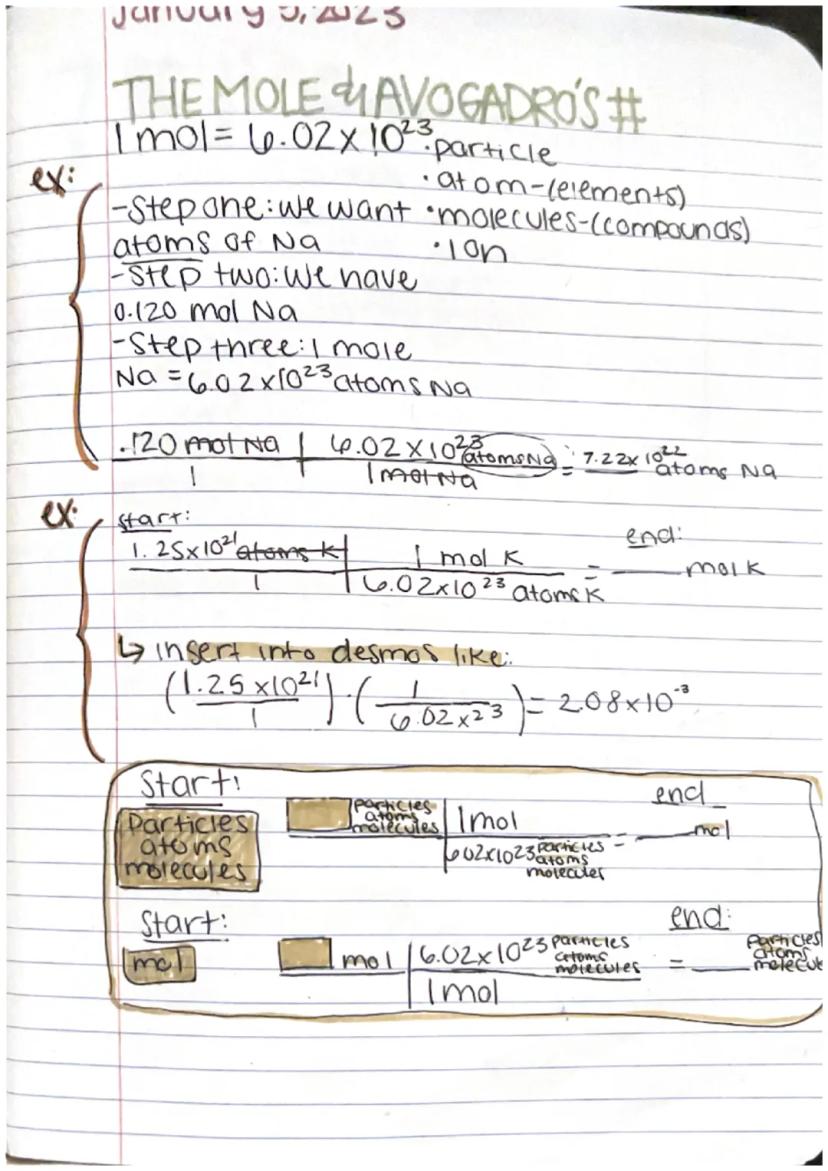 January 5, 2023
THE MOLE & AVOGADRO'S #
1 mol = 6.02 x 10²³ • particle
ex:
• atom-(elements)
-Step one: we want • molecules-(compounds)
atoms of Na • Ion
-Step two: we have
0.120 mol Na
-Step three: 1 mole
Na = 6.02 x 10²³ atoms Na
.120 mol Na | 6.02 x 10²³ atoms Na = 7.22 x 10²² atoms Na
1 | 1 mol Na
ex:
start: end:
1.25x10²¹ atoms K | 1 mol K = ____ mol K
1 | 6.02x10²³ atoms K
↳ insert into desmos like:
(1.25 x10²¹/1) · (1/6.02x²³) = 2.08x10⁻³
Start: end
Particles
atoms
molecules
particles
atoms
molecules
1 mol
6.02x10²³ particles
atoms
molecules
= ____ mol
Start: end:
mol
mol | 6.02x10²³ particles
atoms
molecules
1 mol
= ____ particles
atoms
molecule